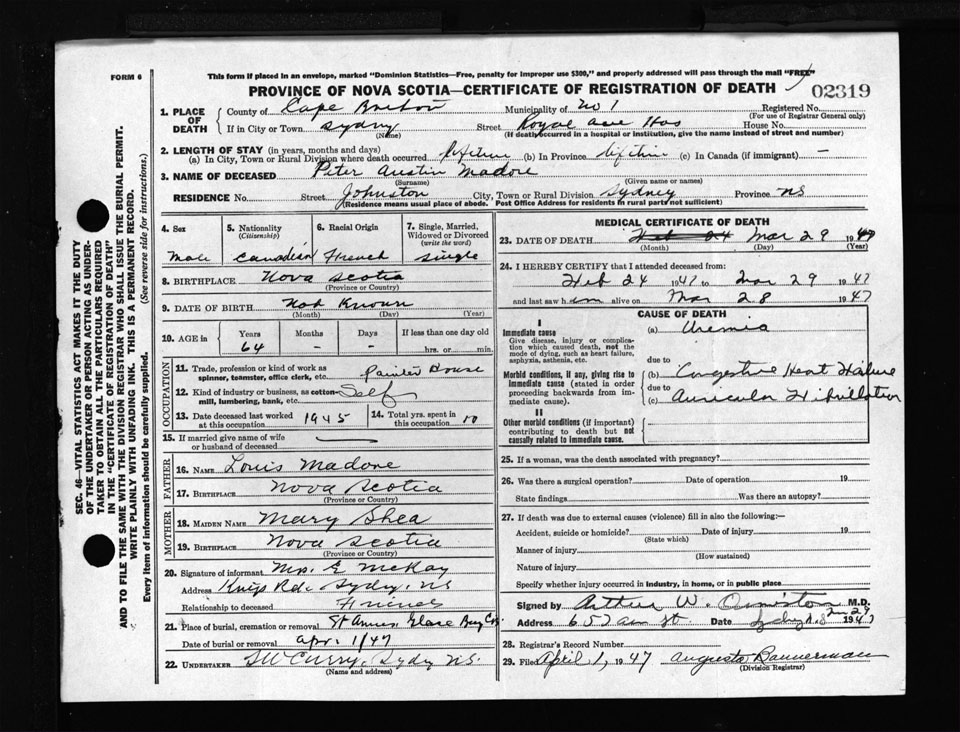 FORM 6
This form if placed in an envelope, marked "Dominion Statistics—Free, penalty for improper use $300," and properly addressed will pass through the mail "FREE"
PROVINCE OF NOVA SCOTIA—CERTIFICATE OF REGISTRATION OF DEATH
02319
1. PLACE OF DEATH
County of Cape Breton Municipality of No 1 Registered No.
(For use of Registrar General only)
If in City or Town Sydney Street Royal ave Hos House No.
(Name) (If death occurred in a hospital or institution, give the name instead of street and number)
2. LENGTH OF STAY (in years, months and days)
(a) In City, Town or Rural Division where death occurred lifetime (b) In Province lifetime (c) In Canada (if immigrant) —
3. NAME OF DECEASED Peter Austin Madore
(Surname) (Given name or names)
RESIDENCE No. Street Johnston City, Town or Rural Division Sydney Province NS
(Residence means usual place of abode. Post Office Address for residents in rural parts not sufficient)
4. Sex Male
5. Nationality (Citizenship) Canadian
6. Racial Origin French
7. Single, Married, Widowed or Divorced (write the word) Single
8. BIRTHPLACE Nova Scotia
(Province or Country)
9. DATE OF BIRTH Not Known
(Month) (Day) (Year)
10. AGE in Years Months Days If less than one day old
64 – – hrs. or min.
OCCUPATION
11. Trade, profession or kind of work as spinner, teamster, office clerk, etc. Painter House
12. Kind of industry or business, as cotton-mill, lumbering, bank, etc. Self
13. Date deceased last worked at this occupation 1945
14. Total yrs. spent in this occupation 10
15. If married give name of wife or husband of deceased —
FATHER
16. NAME Louis Madore
17. BIRTHPLACE Nova Scotia
(Province or Country)
MOTHER
18. MAIDEN NAME Mary Shea
19. BIRTHPLACE Nova Scotia
(Province or Country)
20. Signature of informant Mrs. E McKay
Address Kings Rd. Sydney, NS
Relationship to deceased Friend
21. Place of burial, cremation or removal St Annes Glace Bay
Date of burial or removal apr. 1/47
22. UNDERTAKER Curry, Sydney NS.
(Name and address)
MEDICAL CERTIFICATE OF DEATH
23. DATE OF DEATH Feb 24 Mar 29 1947
(Month) (Day) (Year)
24. I HEREBY CERTIFY that I attended deceased from:
Feb 24 1947 to Mar 29 1947
and last saw him alive on Mar 28 1947
CAUSE OF DEATH
I
Immediate cause
Give disease, injury or complication which caused death, not the mode of dying, such as heart failure, asphyxia, asthenia, etc.
(a) Uremia
due to
Morbid conditions, if any, giving rise to immediate cause (stated in order proceeding backwards from immediate cause).
(b) Congestive Heart Failure
due to
(c) Auricular Fibrillation
II
Other morbid conditions (if important) contributing to death but not causally related to immediate cause.
25. If a woman, was the death associated with pregnancy?
26. Was there a surgical operation? Date of operation 19
State findings Was there an autopsy?
27. If death was due to external causes (violence) fill in also the following:—
Accident, suicide or homicide? Date of injury 19
(State which)
Manner of injury
(How sustained)
Nature of injury
Specify whether injury occurred in industry, in home, or in public place
Signed by Arthur W. Ormiston M.D.
Address Date Mar 29 1947
28. Registrar's Record Number
29. Filed April 1, 1947 Augusta Bannerman
(Division Registrar)
SEC. 46—VITAL STATISTICS ACT MAKES IT THE DUTY
OF THE UNDERTAKER OR PERSON ACTING AS UNDER-
TAKER TO OBTAIN ALL THE PARTICULARS REQUIRED
IN THE "CERTIFICATE OF REGISTRATION OF DEATH"
AND TO FILE THE SAME WITH THE DIVISION REGISTRAR WHO SHALL ISSUE THE BURIAL PERMIT.
WRITE PLAINLY WITH UNFADING INK. THIS IS A PERMANENT RECORD.
Every item of information should be carefully supplied. (See reverse side for instructions.)